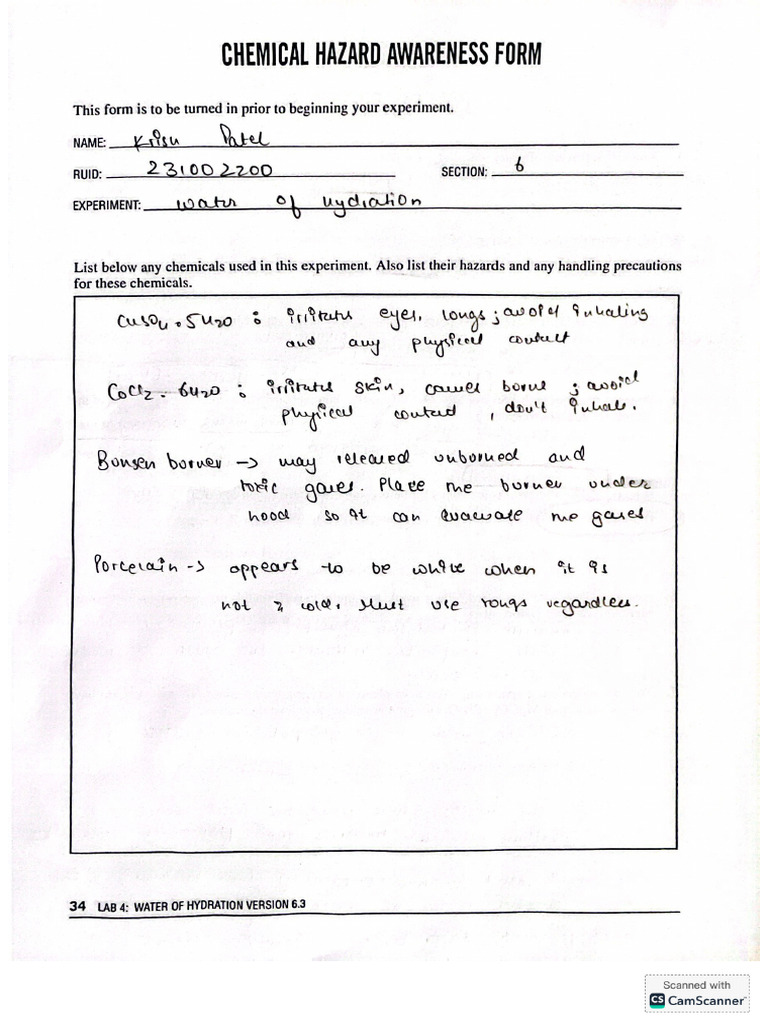 CHEMICAL HAZARD AWARENESS FORM
This form is to be turned in prior to beginning your experiment.
NAME: Krisu Patel
RUID: 231002200 SECTION: 6
EXPERIMENT: water of hydration
List below any chemicals used in this experiment. Also list their hazards and any handling precautions
for these chemicals.
CuSO4 . 5H2O : irritates eyes, lungs ; avoid inhaling
and any physical contact
CoCl2 . 6H2O : irritates skin, causes burns ; avoid
physical contact , don't inhale.
Bunsen burner -> may released unburned and
toxic gases. Place the burner under
hood so it can evacuate the gases
Porcelain -> appears to be white when it is
hot & cold. Must use tongs regardless.
34 LAB 4: WATER OF HYDRATION VERSION 6.3
Scanned with
CS CamScanner